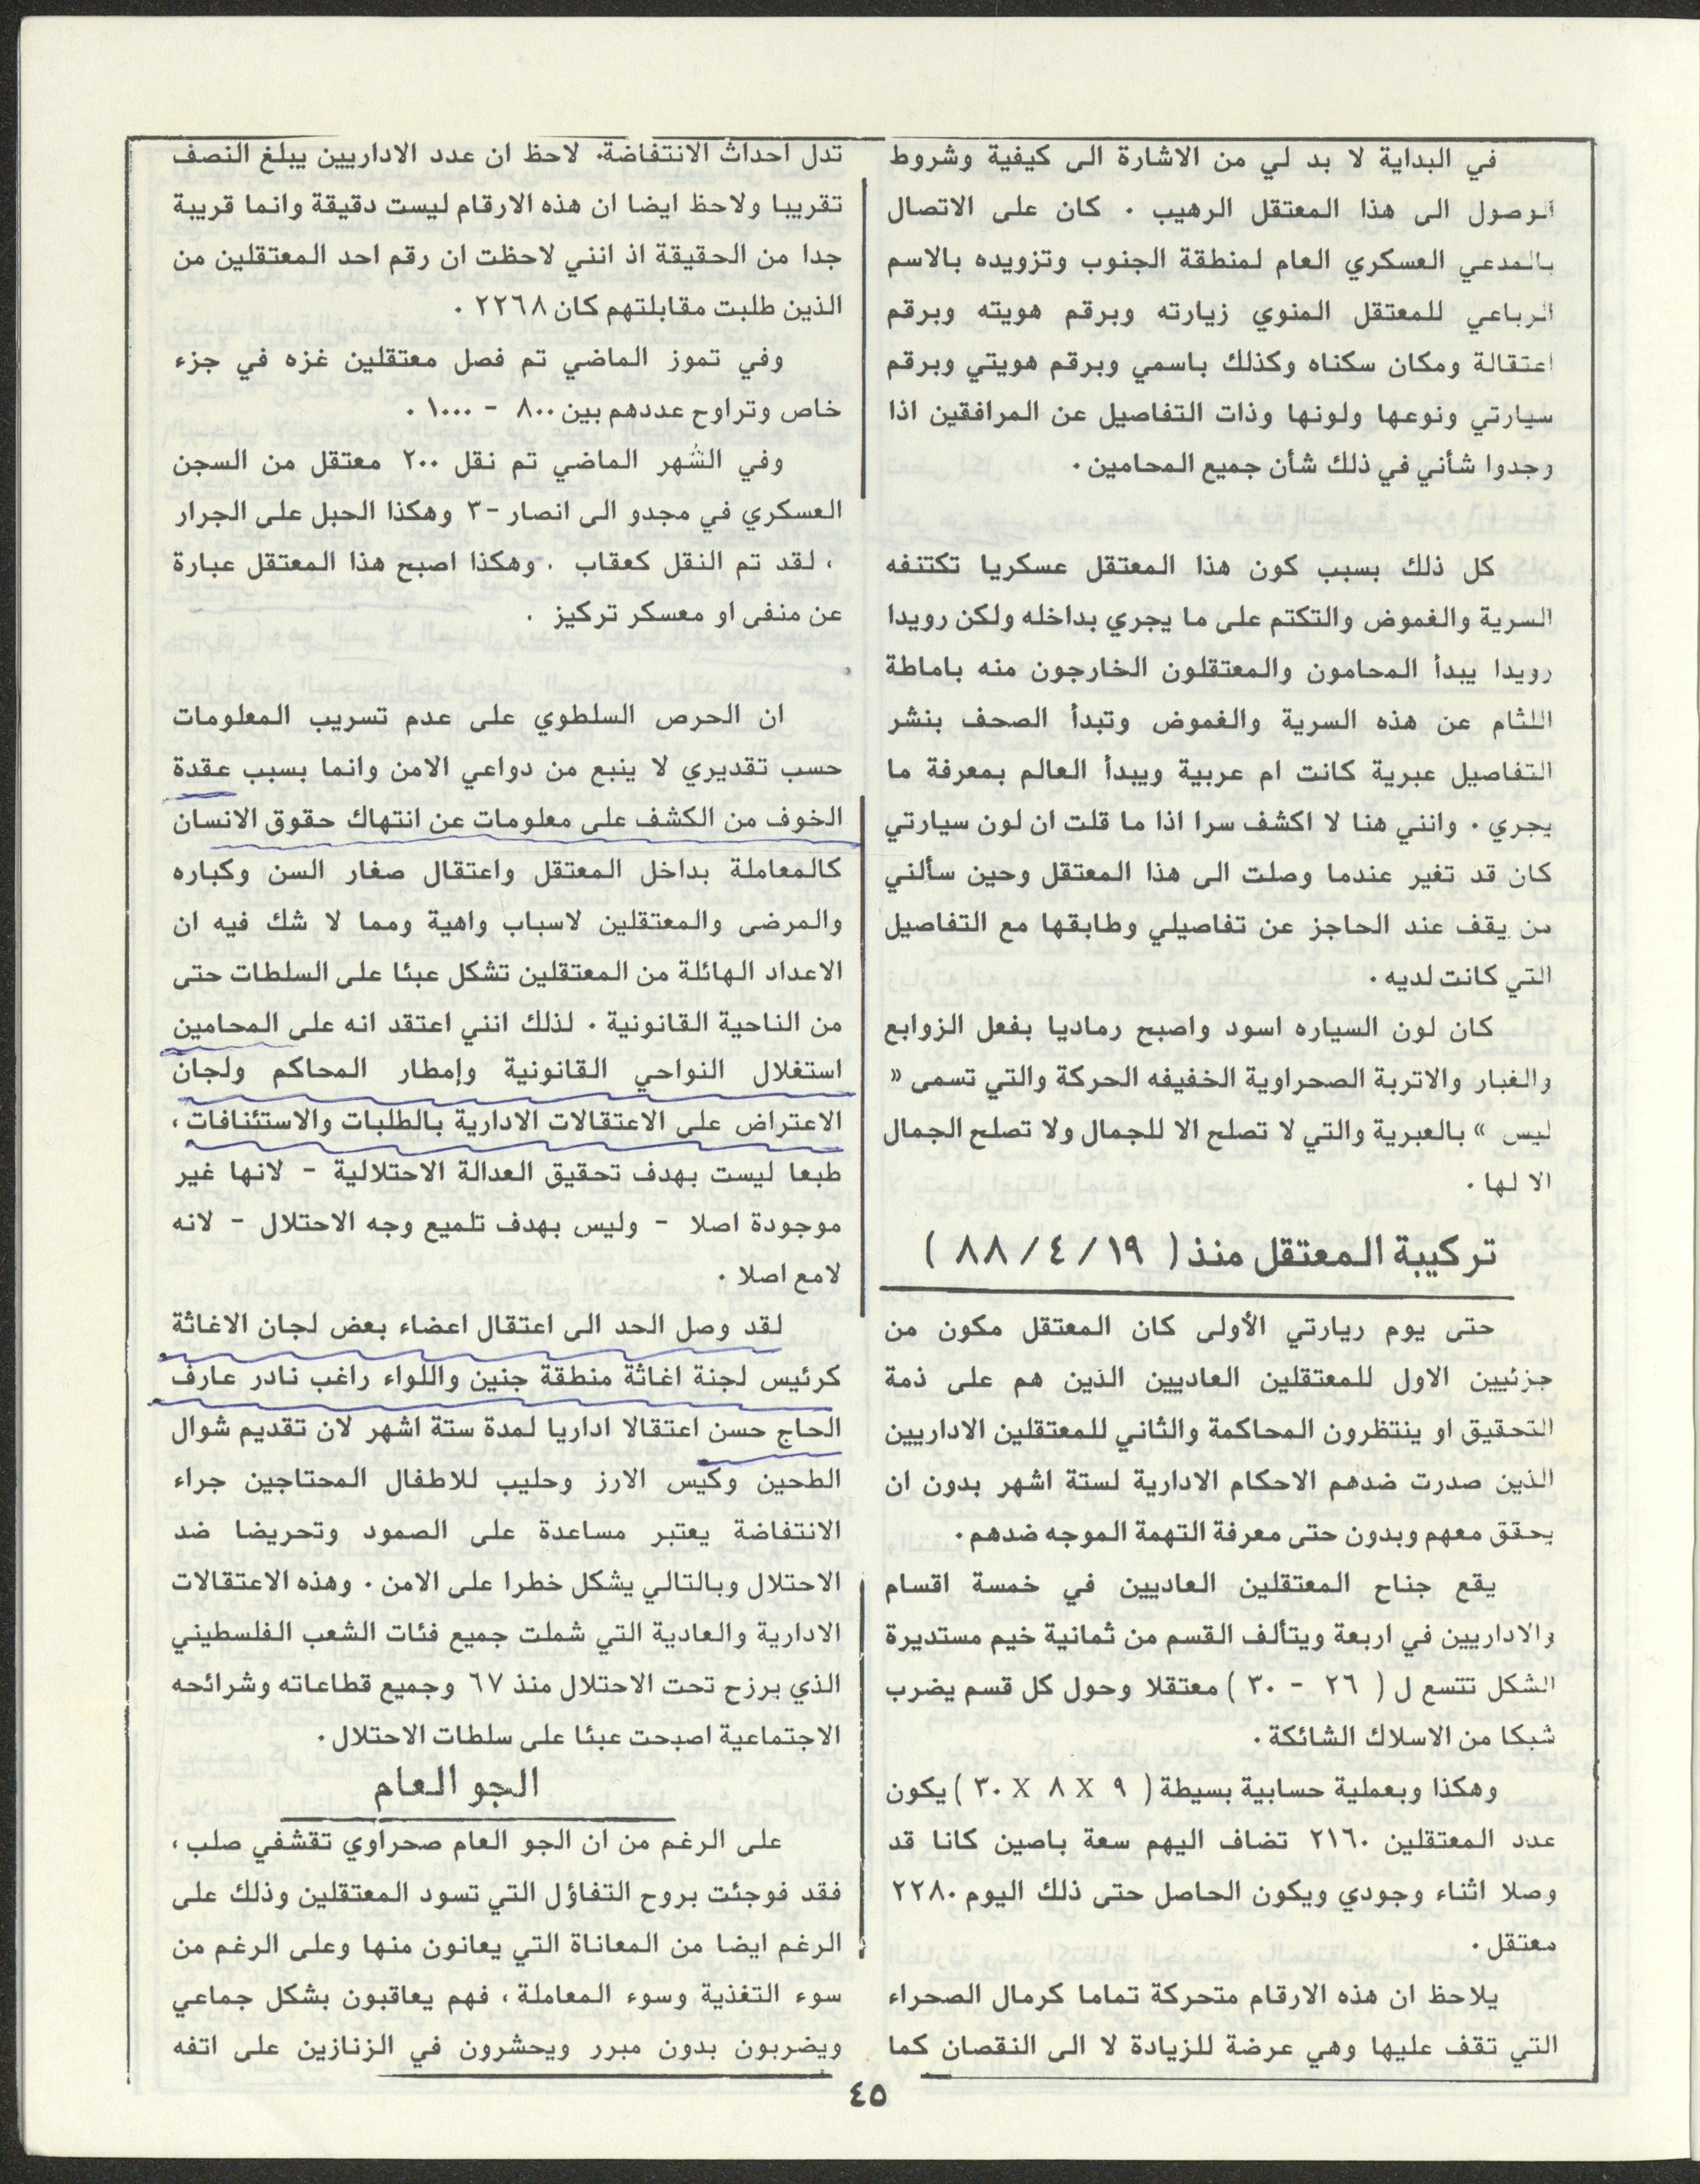 في البداية لا بد لي من الاشارة الى كيفية وشروط
الوصول الى هذا المعتقل الرهيب . كان على الاتصال
بالمدعي العسكري العام لمنطقة الجنوب وتزويده بالاسم
الرباعي للمعتقل المنوي زيارته وبرقم هويته وبرقم
اعتقالة ومكان سكناه وكذلك باسمي وبرقم هويتي وبرقم
سيارتي ونوعها ولونها وذات التفاصيل عن المرافقين اذا
وجدوا شأني في ذلك شأن جميع المحامين .
كل ذلك بسبب كون هذا المعتقل عسكريا تكتنفه
السرية والغموض والتكتم على ما يجري بداخله ولكن رويدا
رويدا يبدأ المحامون والمعتقلون الخارجون منه باماطة
اللثام عن هذه السرية والغموض وتبدأ الصحف بنشر
التفاصيل عبرية كانت ام عربية ويبدأ العالم بمعرفة ما
يجري . وانني هنا لا اكشف سرا اذا ما قلت ان لون سيارتي
كان قد تغير عندما وصلت الى هذا المعتقل وحين سألني
من يقف عند الحاجز عن تفاصيلي وطابقها مع التفاصيل
التي كانت لديه .
كان لون السياره اسود واصبح رماديا بفعل الزوابع
والغبار والاتربة الصحراوية الخفيفه الحركة والتي تسمى «
ليس » بالعبرية والتي لا تصلح الا للجمال ولا تصلح الجمال
الا لها .
تركيبة المعتقل منذ ( ١٩ / ٤ / ٨٨ )
حتى يوم ريارتي الأولى كان المعتقل مكون من
جزئيين الاول للمعتقلين العاديين الذين هم على ذمة
التحقيق او ينتظرون المحاكمة والثاني للمعتقلين الاداريين
الذين صدرت ضدهم الاحكام الادارية لستة اشهر بدون ان
يحقق معهم وبدون حتى معرفة التهمة الموجه ضدهم .
يقع جناح المعتقلين العاديين في خمسة اقسام
والاداريين في اربعة ويتألف القسم من ثمانية خيم مستديرة
الشكل تتسع ل ( ٢٦ - ٣٠ ) معتقلا وحول كل قسم يضرب
شبكا من الاسلاك الشائكة .
وهكذا وبعملية حسابية بسيطة ( ٩ X ٨ X ٣٠ ) يكون
عدد المعتقلين ٢١٦٠ تضاف اليهم سعة باصين كانا قد
وصلا اثناء وجودي ويكون الحاصل حتى ذلك اليوم ٢٢٨٠
معتقل .
يلاحظ ان هذه الارقام متحركة تماما كرمال الصحراء
التي تقف عليها وهي عرضة للزيادة لا الى النقصان كما
تدل احداث الانتفاضة. لاحظ ان عدد الاداريين يبلغ النصف
تقريبا ولاحظ ايضا ان هذه الارقام ليست دقيقة وانما قريبة
جدا من الحقيقة اذ انني لاحظت ان رقم احد المعتقلين من
الذين طلبت مقابلتهم كان ٢٢٦٨ .
وفي تموز الماضي تم فصل معتقلين غزه في جزء
خاص وتراوح عددهم بين ٨٠٠ - ١٠٠٠ .
وفي الشهر الماضي تم نقل ٢٠٠ معتقل من السجن
العسكري في مجدو الى انصار -٣ وهكذا الحبل على الجرار
، لقد تم النقل كعقاب . وهكذا اصبح هذا المعتقل عبارة
عن منفى او معسكر تركيز .
ان الحرص السلطوي على عدم تسريب المعلومات
حسب تقديري لا ينبع من دواعي الامن وانما بسبب عقدة
الخوف من الكشف على معلومات عن انتهاك حقوق الانسان
كالمعاملة بداخل المعتقل واعتقال صغار السن وكباره
والمرضى والمعتقلين لاسباب واهية ومما لا شك فيه ان
الاعداد الهائلة من المعتقلين تشكل عبئا على السلطات حتى
من الناحية القانونية . لذلك انني اعتقد انه على المحامين
استغلال النواحي القانونية وإمطار المحاكم ولجان
الاعتراض على الاعتقالات الادارية بالطلبات والاستئنافات ،
طبعا ليست بهدف تحقيق العدالة الاحتلالية - لانها غير
موجودة اصلا - وليس بهدف تلميع وجه الاحتلال - لانه
لامع اصلا .
لقد وصل الحد الى اعتقال اعضاء بعض لجان الاغاثة
كرئيس لجنة اغاثة منطقة جنين واللواء راغب نادر عارف
الحاج حسن اعتقالا اداريا لمدة ستة اشهر لان تقديم شوال
الطحين وكيس الارز وحليب للاطفال المحتاجين جراء
الانتفاضة يعتبر مساعدة على الصمود وتحريضا ضد
الاحتلال وبالتالي يشكل خطرا على الامن . وهذه الاعتقالات
الادارية والعادية التي شملت جميع فئات الشعب الفلسطيني
الذي يرزح تحت الاحتلال منذ ٦٧ وجميع قطاعاته وشرائحه
الاجتماعية اصبحت عبئا على سلطات الاحتلال .
الجو العام
على الرغم من ان الجو العام صحراوي تقشفي صلب ،
فقد فوجئت بروح التفاؤل التي تسود المعتقلين وذلك على
الرغم ايضا من المعاناة التي يعانون منها وعلى الرغم من
سوء التغذية وسوء المعاملة ، فهم يعاقبون بشكل جماعي
ويضربون بدون مبرر ويحشرون في الزنازين على اتفه
٤٥